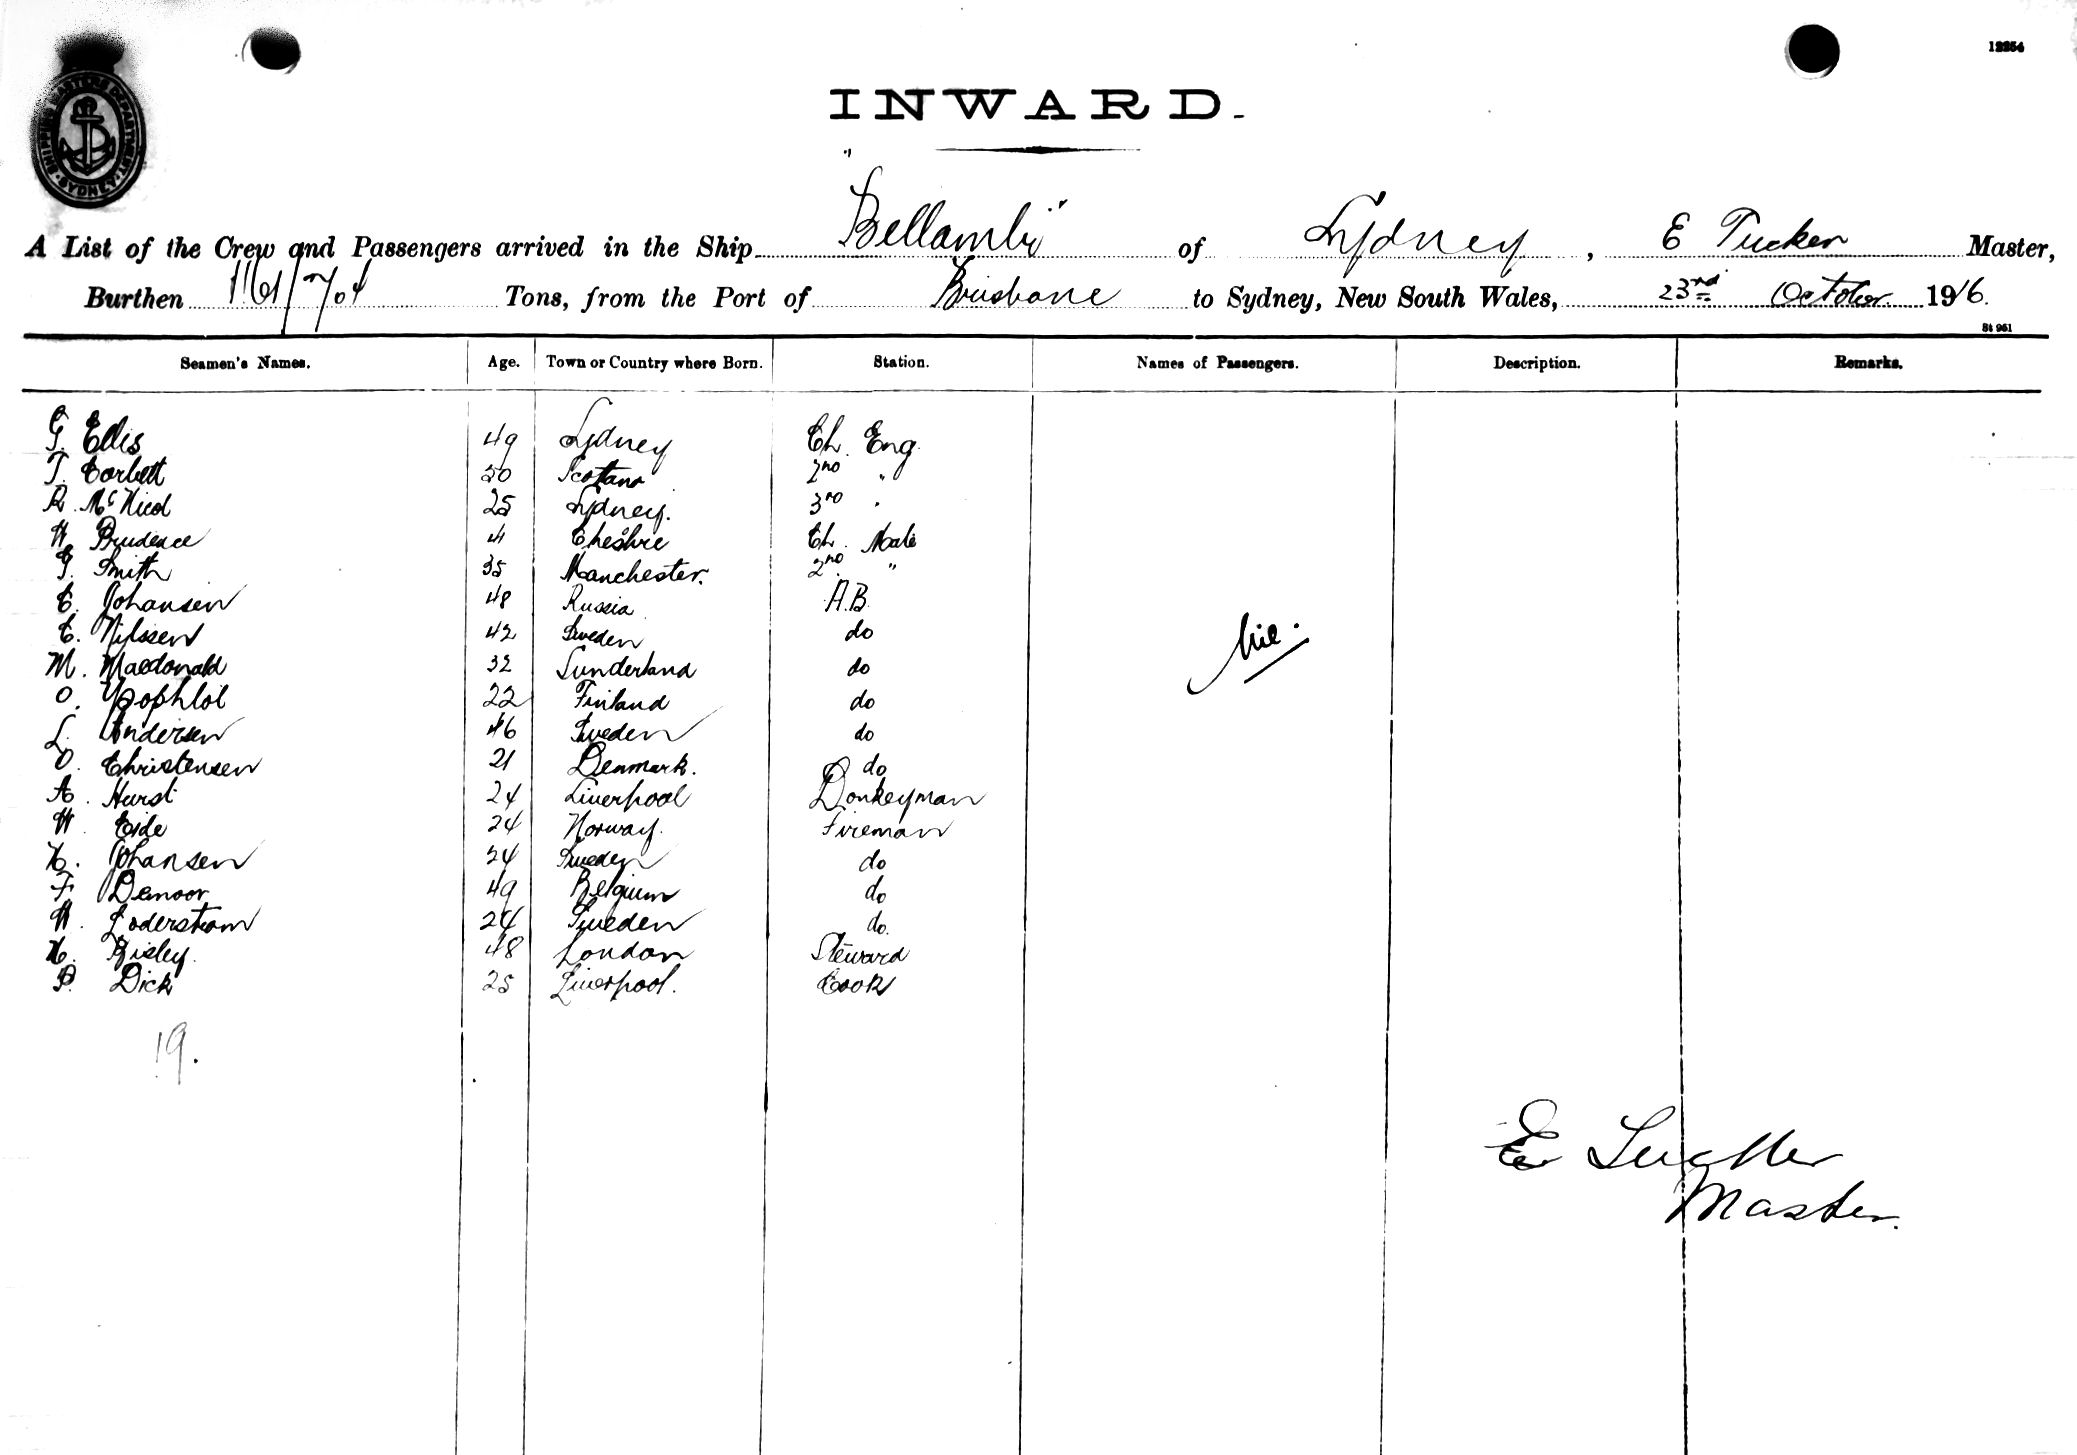 12254
SHIPPING MASTERS DEPARTMENT
SYDNEY
INWARD.
A List of the Crew and Passengers arrived in the Ship "Bellambi" of Sydney, E Tucker Master,
Burthen Tons, from the Port of Brisbane to Sydney, New South Wales, 23rd October 1916.
St 961
Seamen's Names. Age. Town or Country where Born. Station. Names of Passengers. Description. Remarks.
G. Ellis 49 Sydney Ch. Eng.
T. Corbett Scotland 2nd "
R. McNicol 25 Sydney. 3rd "
H Prudence Cheshire Ch. Mate
G. Smith 35 Manchester. 2nd "
E. Johansen 48 Russia A.B.
E. Nilssen 42 Sweden do
Nil.
M. Macdonald 32 Sunderland do
O. 22 Finland do
L. Andersen 46 Sweden do
O. Christensen 21 Denmark. do
A. Hurst 24 Liverpool Donkeyman
H. Eide 24 Norway. Fireman
K. Johansen 24 Sweden do
F Demoor 49 Belgium do
H. Soderstrom 24 Sweden do.
H. Risley. 48 London Steward
P. Dick 25 Liverpool. Cook
19.
E Tucker
Master.